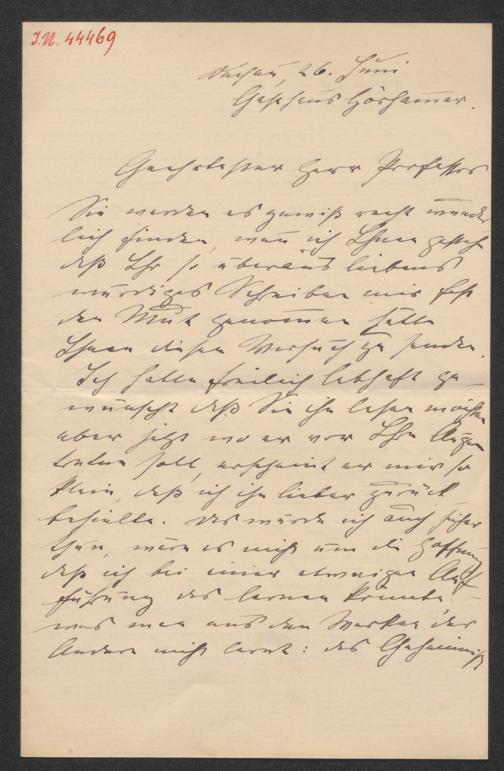 I.N. 44469
Dachau, 26. Juni
Gasthaus Hörhamer.
Geehrtester Herr Professor
Sie werden es gewiß recht wunder
lich finden, wenn ich Ihnen gesteh
daß Ihr so überaus liebens
würdiges Schreiben mir fast
den Mut genommen hätte
Ihnen diesen Versuch zu senden.
Ich hatte freilich lebhaft ge-
wünscht daß Sie ihn lesen möchten
aber jetzt wo er vor Ihre Augen
treten soll, erscheint er mir so
klein, daß ich ihn lieber zurück
behielte. Das würde ich auch sicher
thun, wäre es nicht um die Hoffnung
daß ich bei einer etwaigen Auf-
führung das lernen könnte
was man aus den Werken der
Andern nicht lernt: das Geheimniß